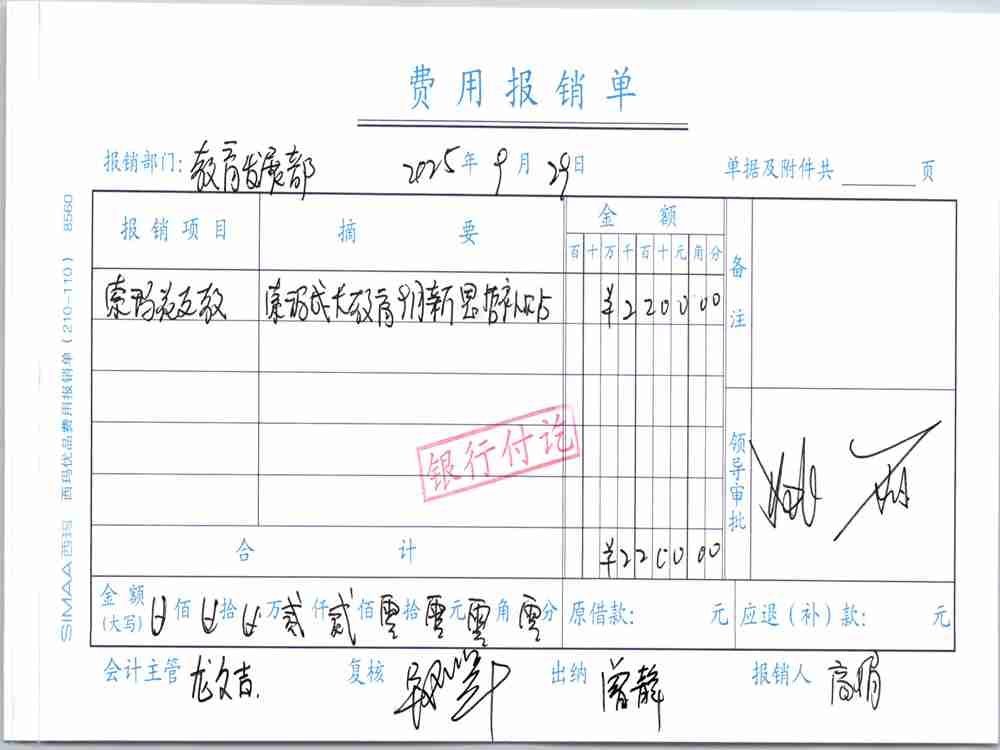 费用报销单
报销部门: 教育发展部 2025年 9月 29日 单据及附件共 页
报销项目 摘要 金额 备注
百十万千百十元角分
索玛花支教 索玛成大教育9月新 ¥220000
银行付讫
领导审批
合计 ¥220000
金额(大写) 佰 拾 万贰仟贰佰零拾零元零角零分 原借款: 元 应退(补)款: 元
会计主管 龙文吉 复核 出纳 曾静 报销人 高娟
SIMAA西玛 西玛优品费用报销单(210-110) 8560